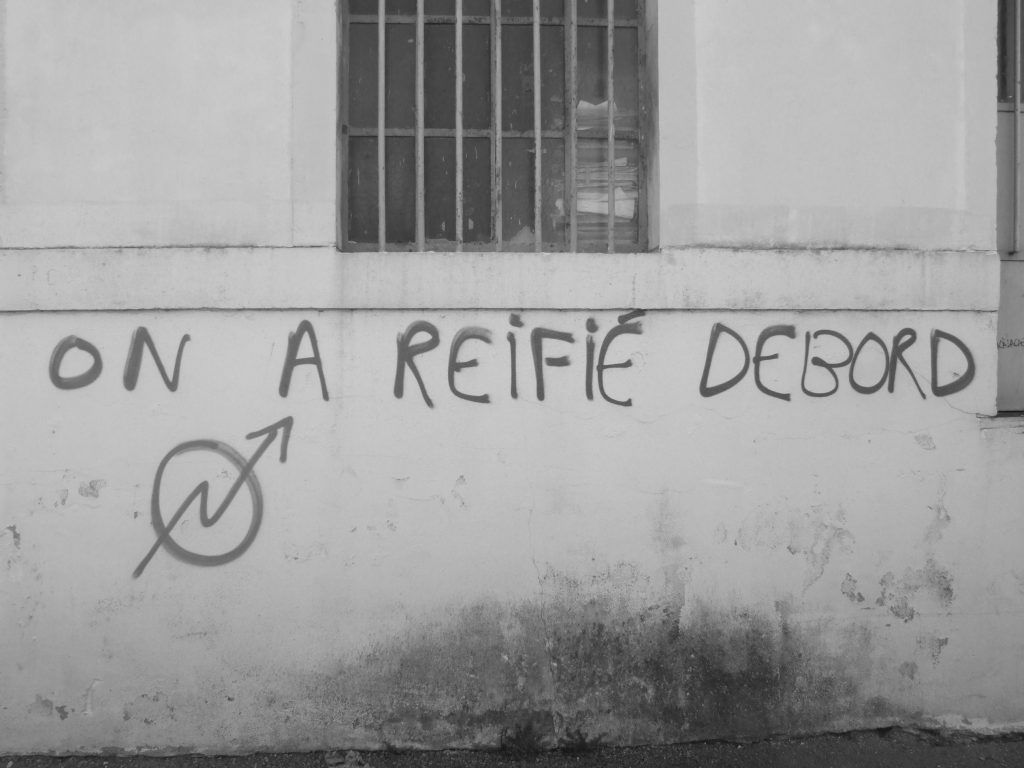 ON A REiFiÉ DEBORD